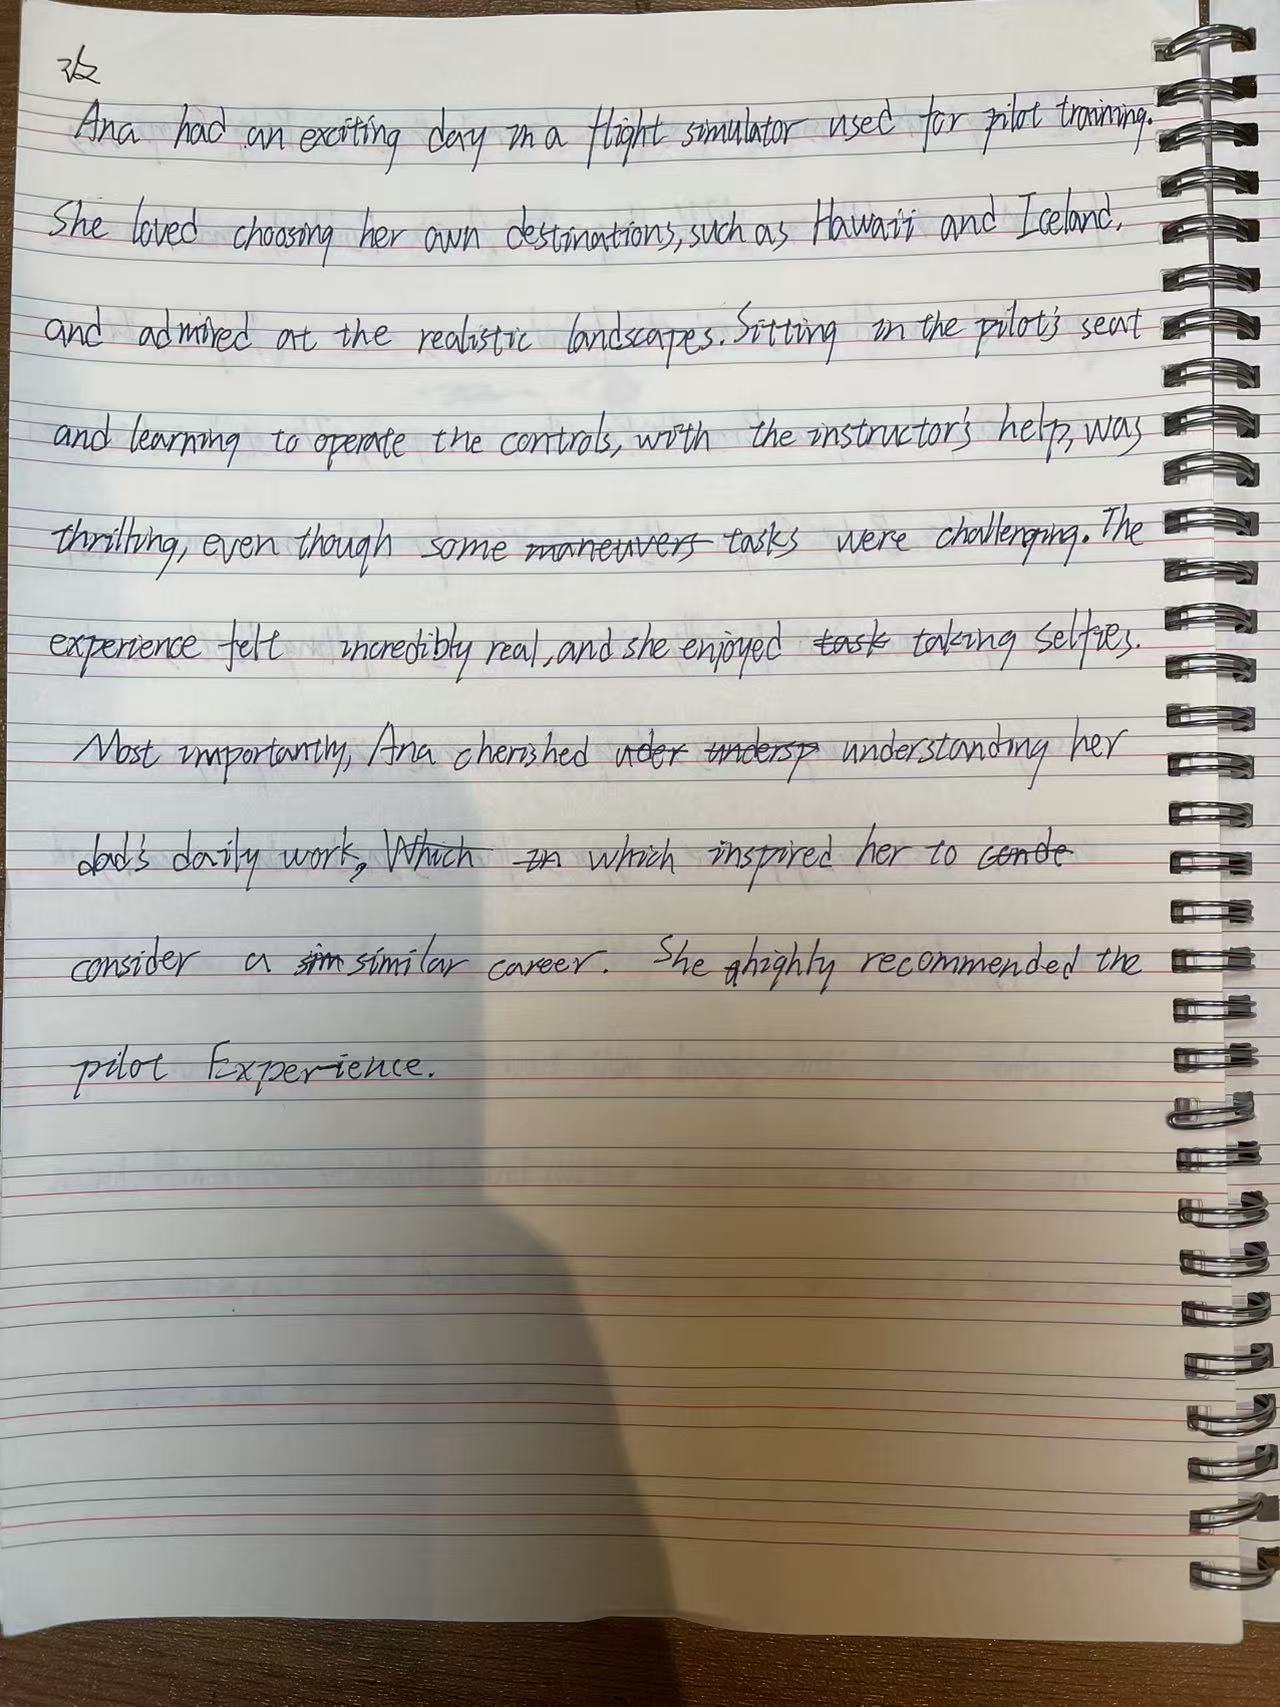 改
Ana had an exciting day in a flight simulator used for pilot training.
She loved choosing her own destinations, such as Hawaii and Iceland,
and admired at the realistic landscapes. Sitting in the pilot's seat
and learning to operate the controls, with the instructor's help, was
thrilling, even though some maneuvers tasks were challenging. The
experience felt incredibly real, and she enjoyed task taking selfies.
Most importantly, Ana cherished uder undersp understanding her
dad's daily work, Which in which inspired her to conde
consider a sim similar career. She highly recommended the
pilot Experience.